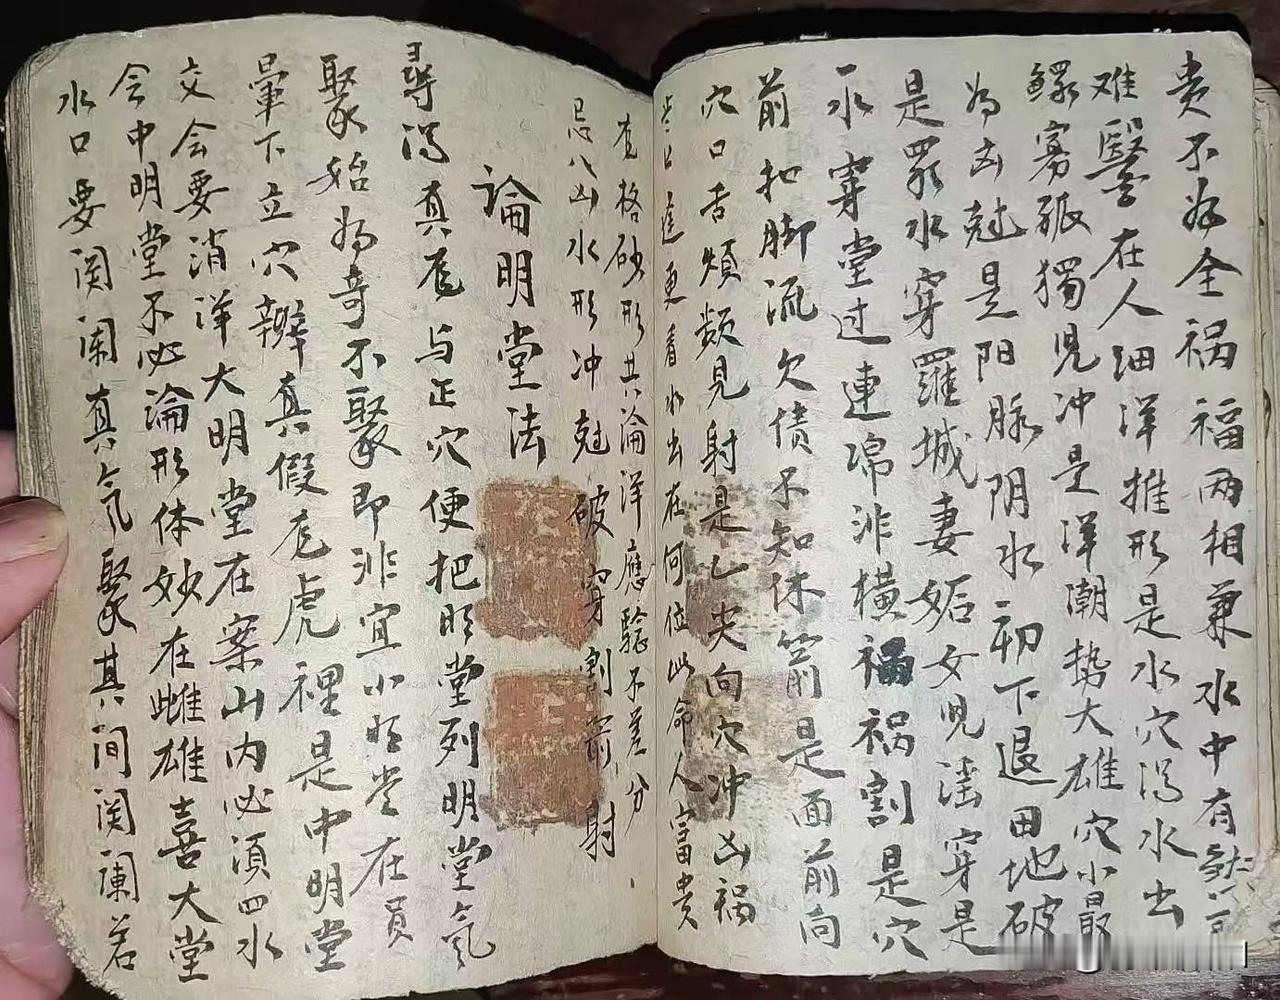 贵不为全祸福两相兼水中有
难医在人细洋推形是水穴得水出
鳏寡孤獨見冲是洋潮势大雄穴小最
为凶尅是阳脉阴水初下退田地破
是罢水穿羅城妻妬女見滛穿是
一水穿堂过連帰非横祸割是穴
前扣脚流欠债不知休箭是面前向
穴口舌頻頻見射是乙尖向穴冲凶祸
更看水出在何位此命人富贵
格砂形其論洋應驗不差分
忌八凶水形冲尅破穿割箭射
論明堂法
尋得真龙与正穴便把明堂列明堂氣
聚始为奇不聚即非宜小明堂在員
暈下立穴辨真假龙虎裡是中明堂
交会要消洋大明堂在案山内必湏四水
会中明堂不必論形体妙在雌雄喜大堂
水口要関闌真氣聚其间関闌若